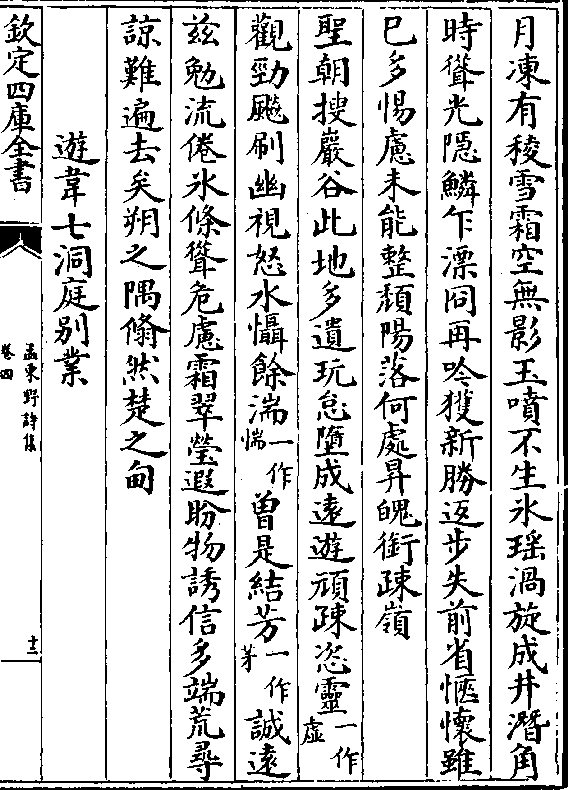 月凍有稜雪霜空無影玉噴不生氷瑶渦旋成井潛角
時聳光隠鱗乍漂冏再吟獲新勝返步失前省愜懷雖
已多惕慮未能整頹陽落何處昇魄銜疎嶺
聖朝搜巖谷此地多遺玩怠墮成遠遊頑疎恣靈一作虚
觀勁飈刷幽視怒水懾餘湍一作惴曽是結芳一作茅誠遠
兹勉流倦氷條聳危慮霜翠瑩遐盼物誘信多端荒尋
諒難遍去矣朔之隅翛然楚之甸
遊韋七洞庭别業
欽定四庫全書
孟東野詩集
卷四
十三